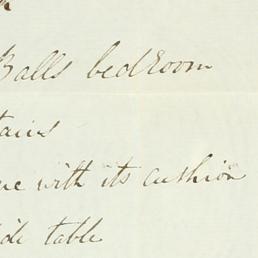 Balls bedroom
tains
with its cushion
ide table